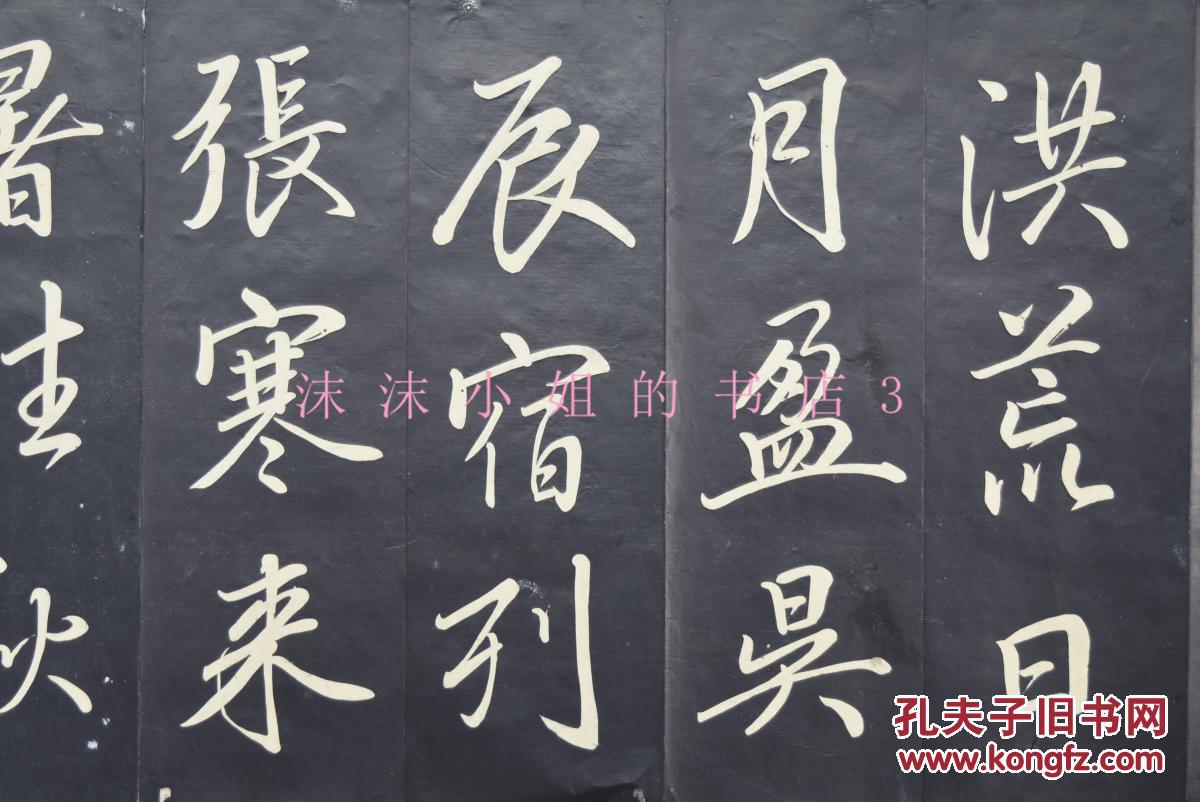 洪荒日
月盈昃
辰宿列
張寒来
暑往秋
沫沫小姐的书店3
孔夫子旧书网
www.kongfz.com